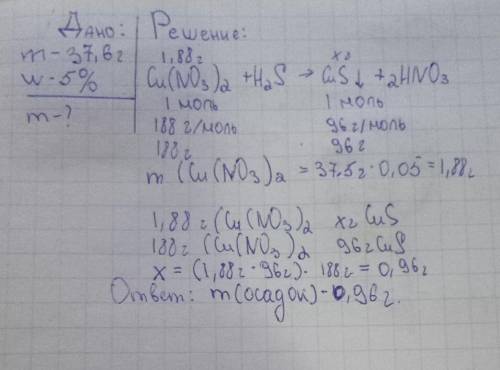 Дано:
m - 37,6г
w - 5%
m - ?
Решение:
1,88г xг
Cu(NO3)2 + H2S → CuS↓ + 2HNO3
1 моль 1 моль
188 г/моль 96г/моль
188г 96г
m (Cu(NO3)2 = 37.5г · 0,05 = 1,88г
1,88г (Cu(NO3)2 xг CuS
188г (Cu(NO3)2 96г CuS
x = (1,88г · 96г) · 188г = 0,96г
Ответ: m(осадок) - 0,96г.